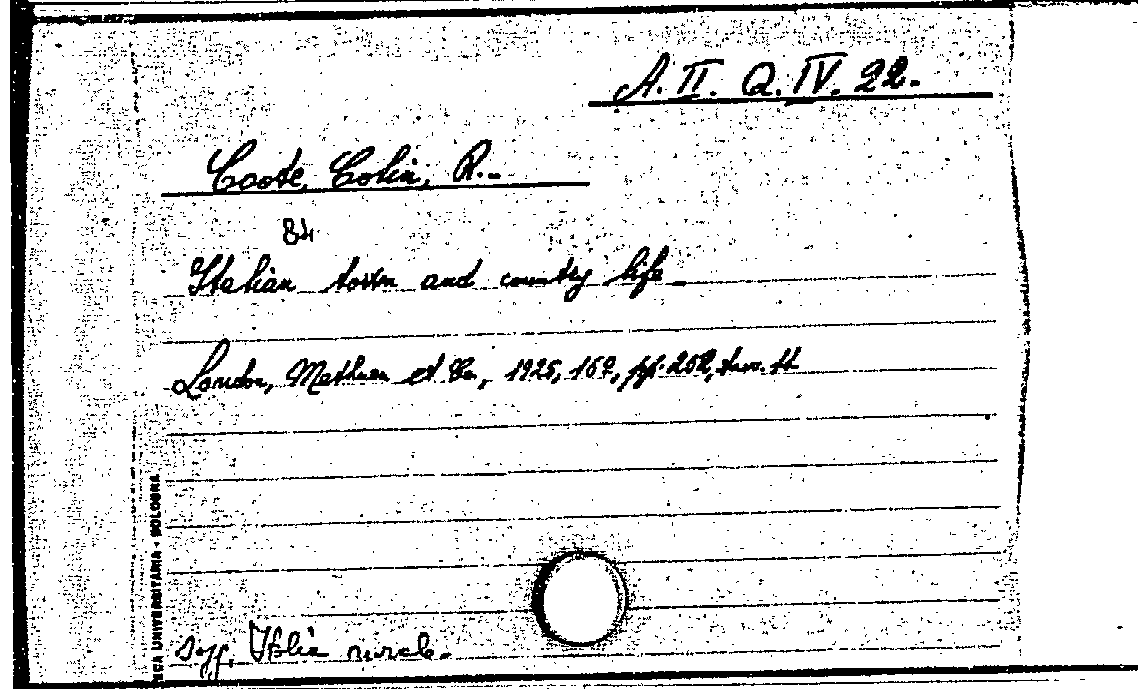 A. II. Q. IV. 22.
Coote, Colin, R.-
84
Italian town and country life
London, Methuen et Co, 1925, 16?, pp. 252, tav. ill
Sogg. Italia rurale.
UNIVERSITARIA - BOLOGNA